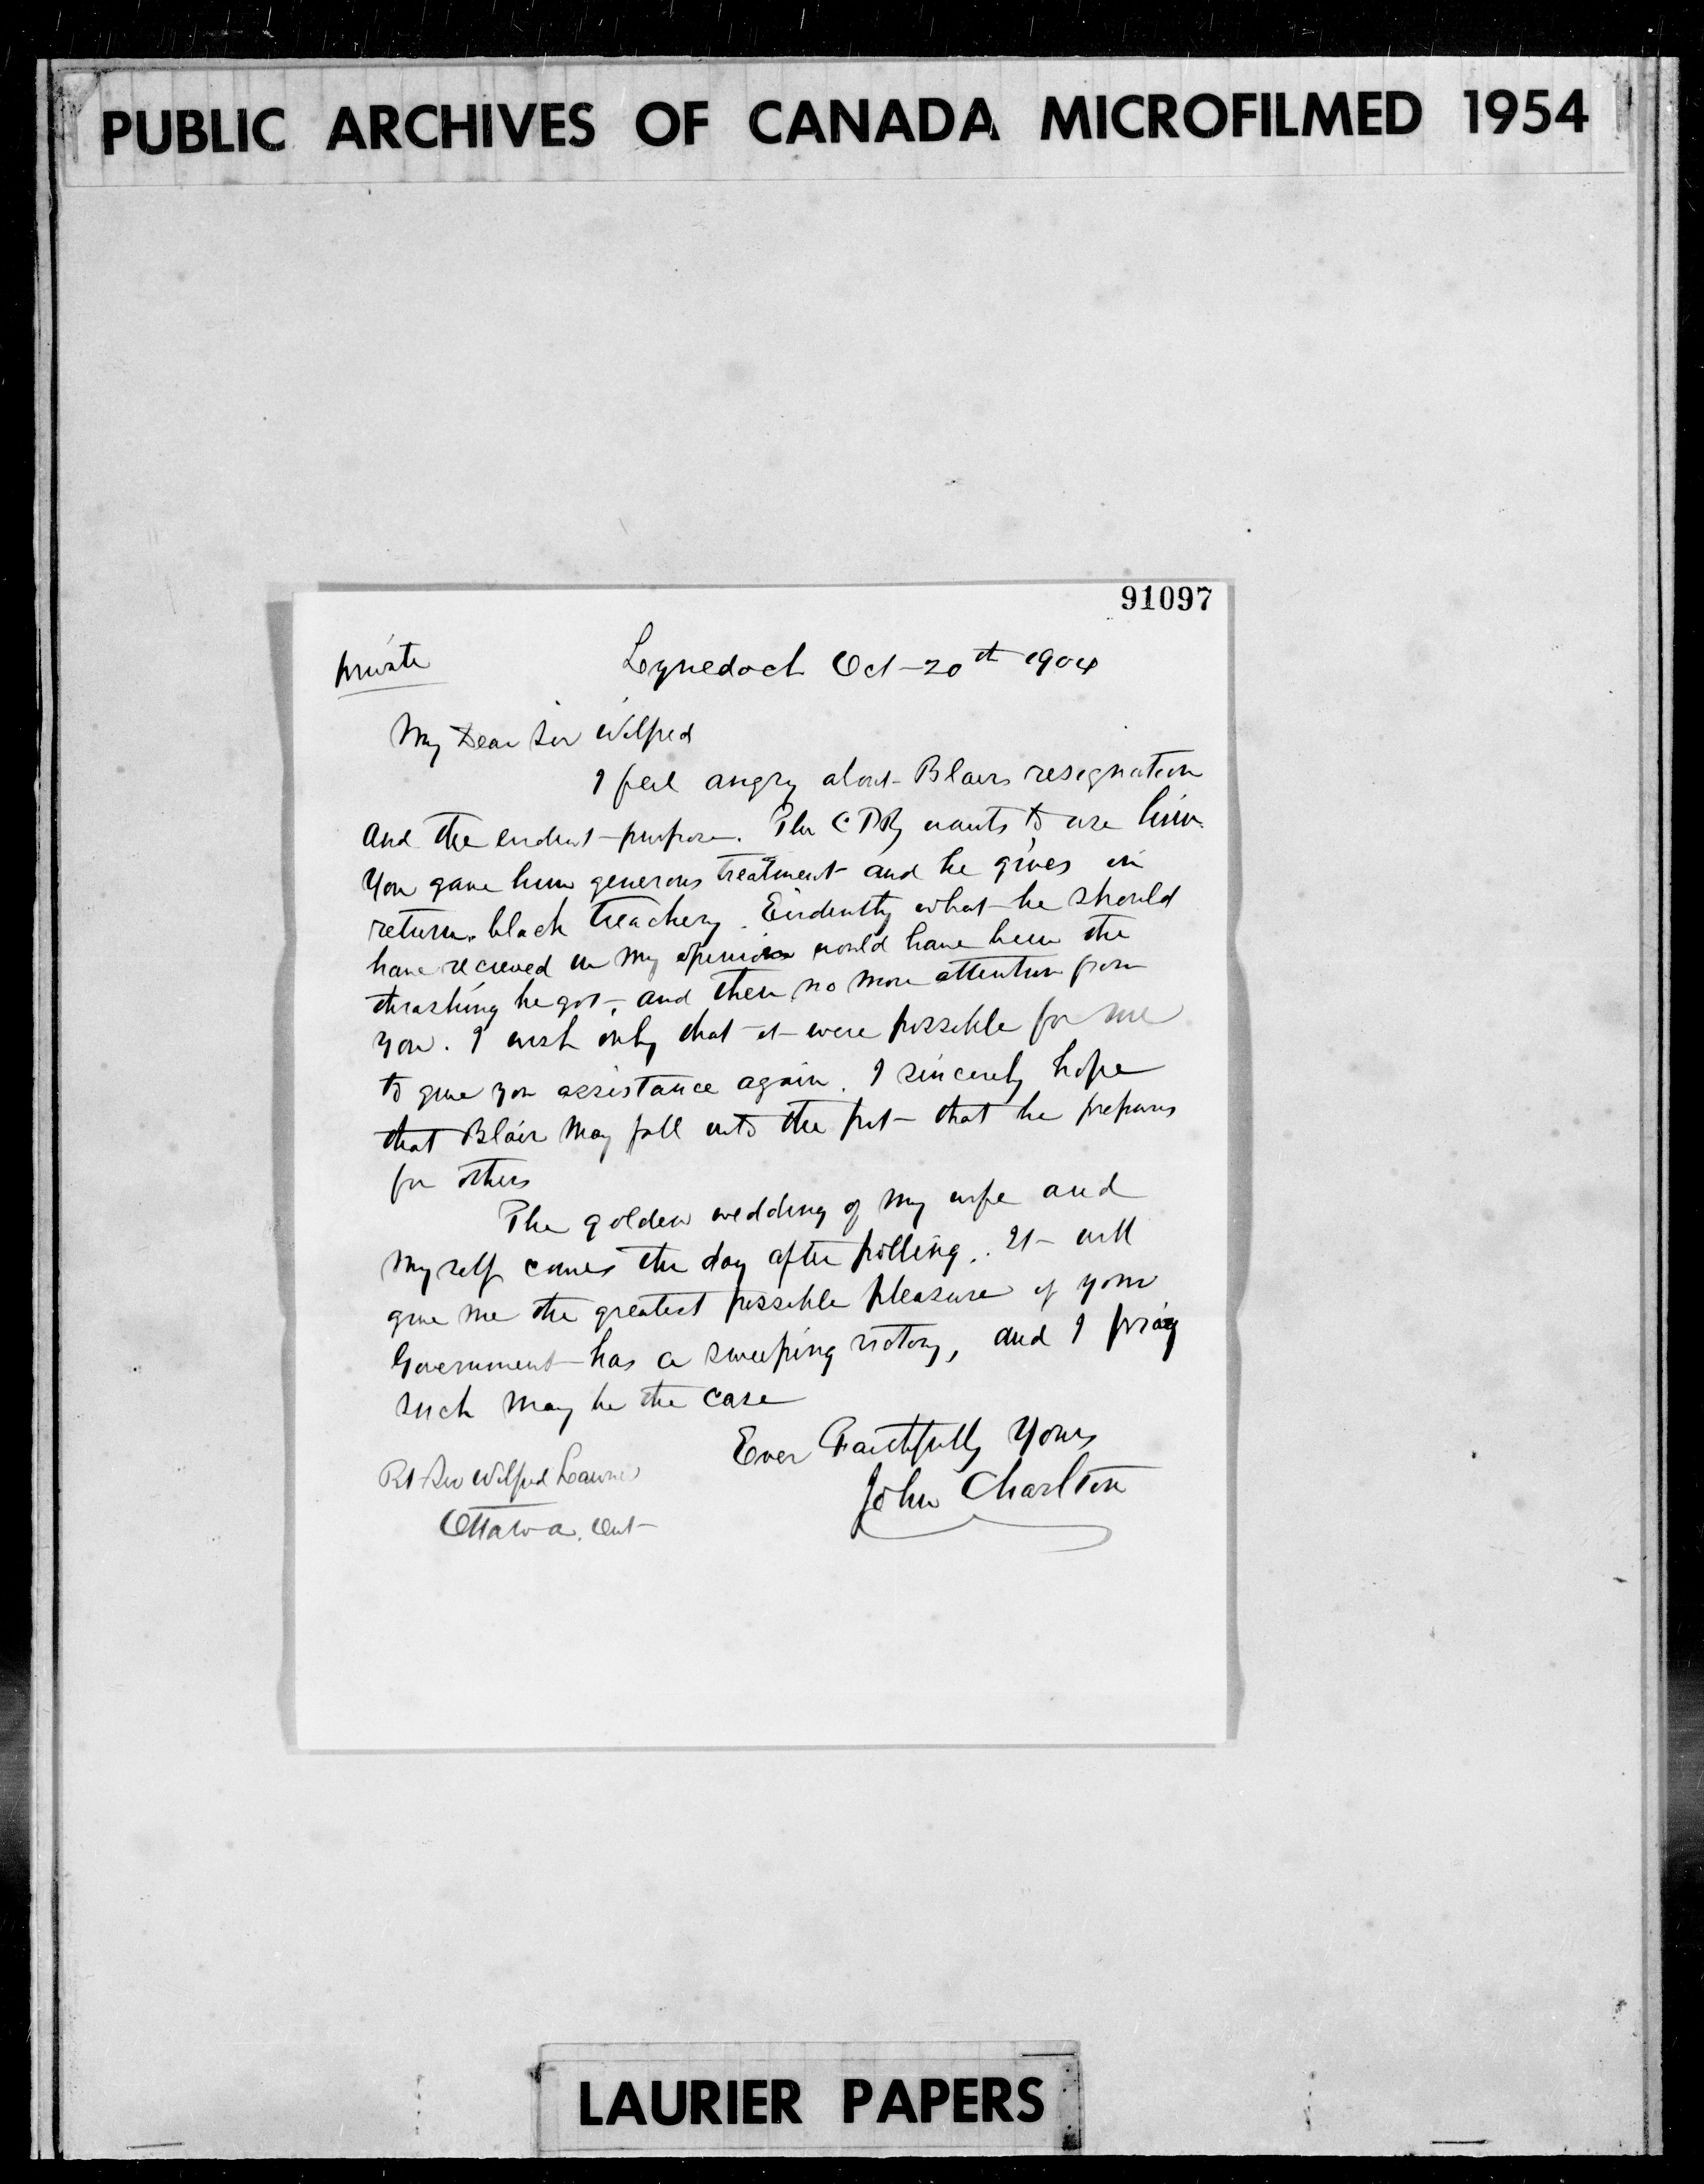 PUBLIC ARCHIVES OF CANADA MICROFILMED 1954
91097
private
Lynedoch Oct-20th 1904
My Dear Sir Wilfred
I feel angry about Blairs resignation
And the evident purpose. The CPRy wants to use him.
You gave him generous treatment and he gives in
return black treachery. Evidently what he should
have recieved in my opinion would have been the
thrashing he got, and then no more attention from
you. I wish only that it were possible for me
to give you assistance again. I sincerely hope
that Blair may fall into the pit that he prepares
for others
The golden wedding of my wife and
myself comes the day after polling. It will
give me the greatest possible pleasure if your
Government has a sweeping victory, and I pray
such may be the case
Ever Faithfully Yours
John Charlton
Rt Sir Wilfred Laurier
Ottawa, Ont
LAURIER PAPERS